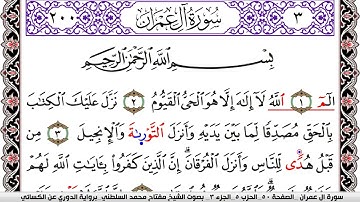 ٢٠٠ سُورَةُ آلِ عِمْرَان ٣
بِسْمِ ٱللَّهِ ٱلرَّحْمَٰنِ ٱلرَّحِيمِ
الٓمٓ ١ ٱللَّهُ لَآ إِلَٰهَ إِلَّا هُوَ ٱلْحَىُّ ٱلْقَيُّومُ ٢ نَزَّلَ عَلَيْكَ ٱلْكِتَٰبَ
بِٱلْحَقِّ مُصَدِّقًا لِّمَا بَيْنَ يَدَيْهِ وَأَنزَلَ ٱلتَّوْرَىٰةَ وَٱلْإِنجِيلَ ٣ مِن
قَبْلُ هُدًى لِّلنَّاسِ وَأَنزَلَ ٱلْفُرْقَانَ إِنَّ ٱلَّذِينَ كَفَرُوا۟ بِـَٔايَٰتِ ٱللَّهِ لَهُمْ
سورة آل عمران الصفحة ٥٠ الحزب ٥ الجزء ٣ بصوت الشيخ مفتاح محمد السلطني برواية الدوري عن الكسائي